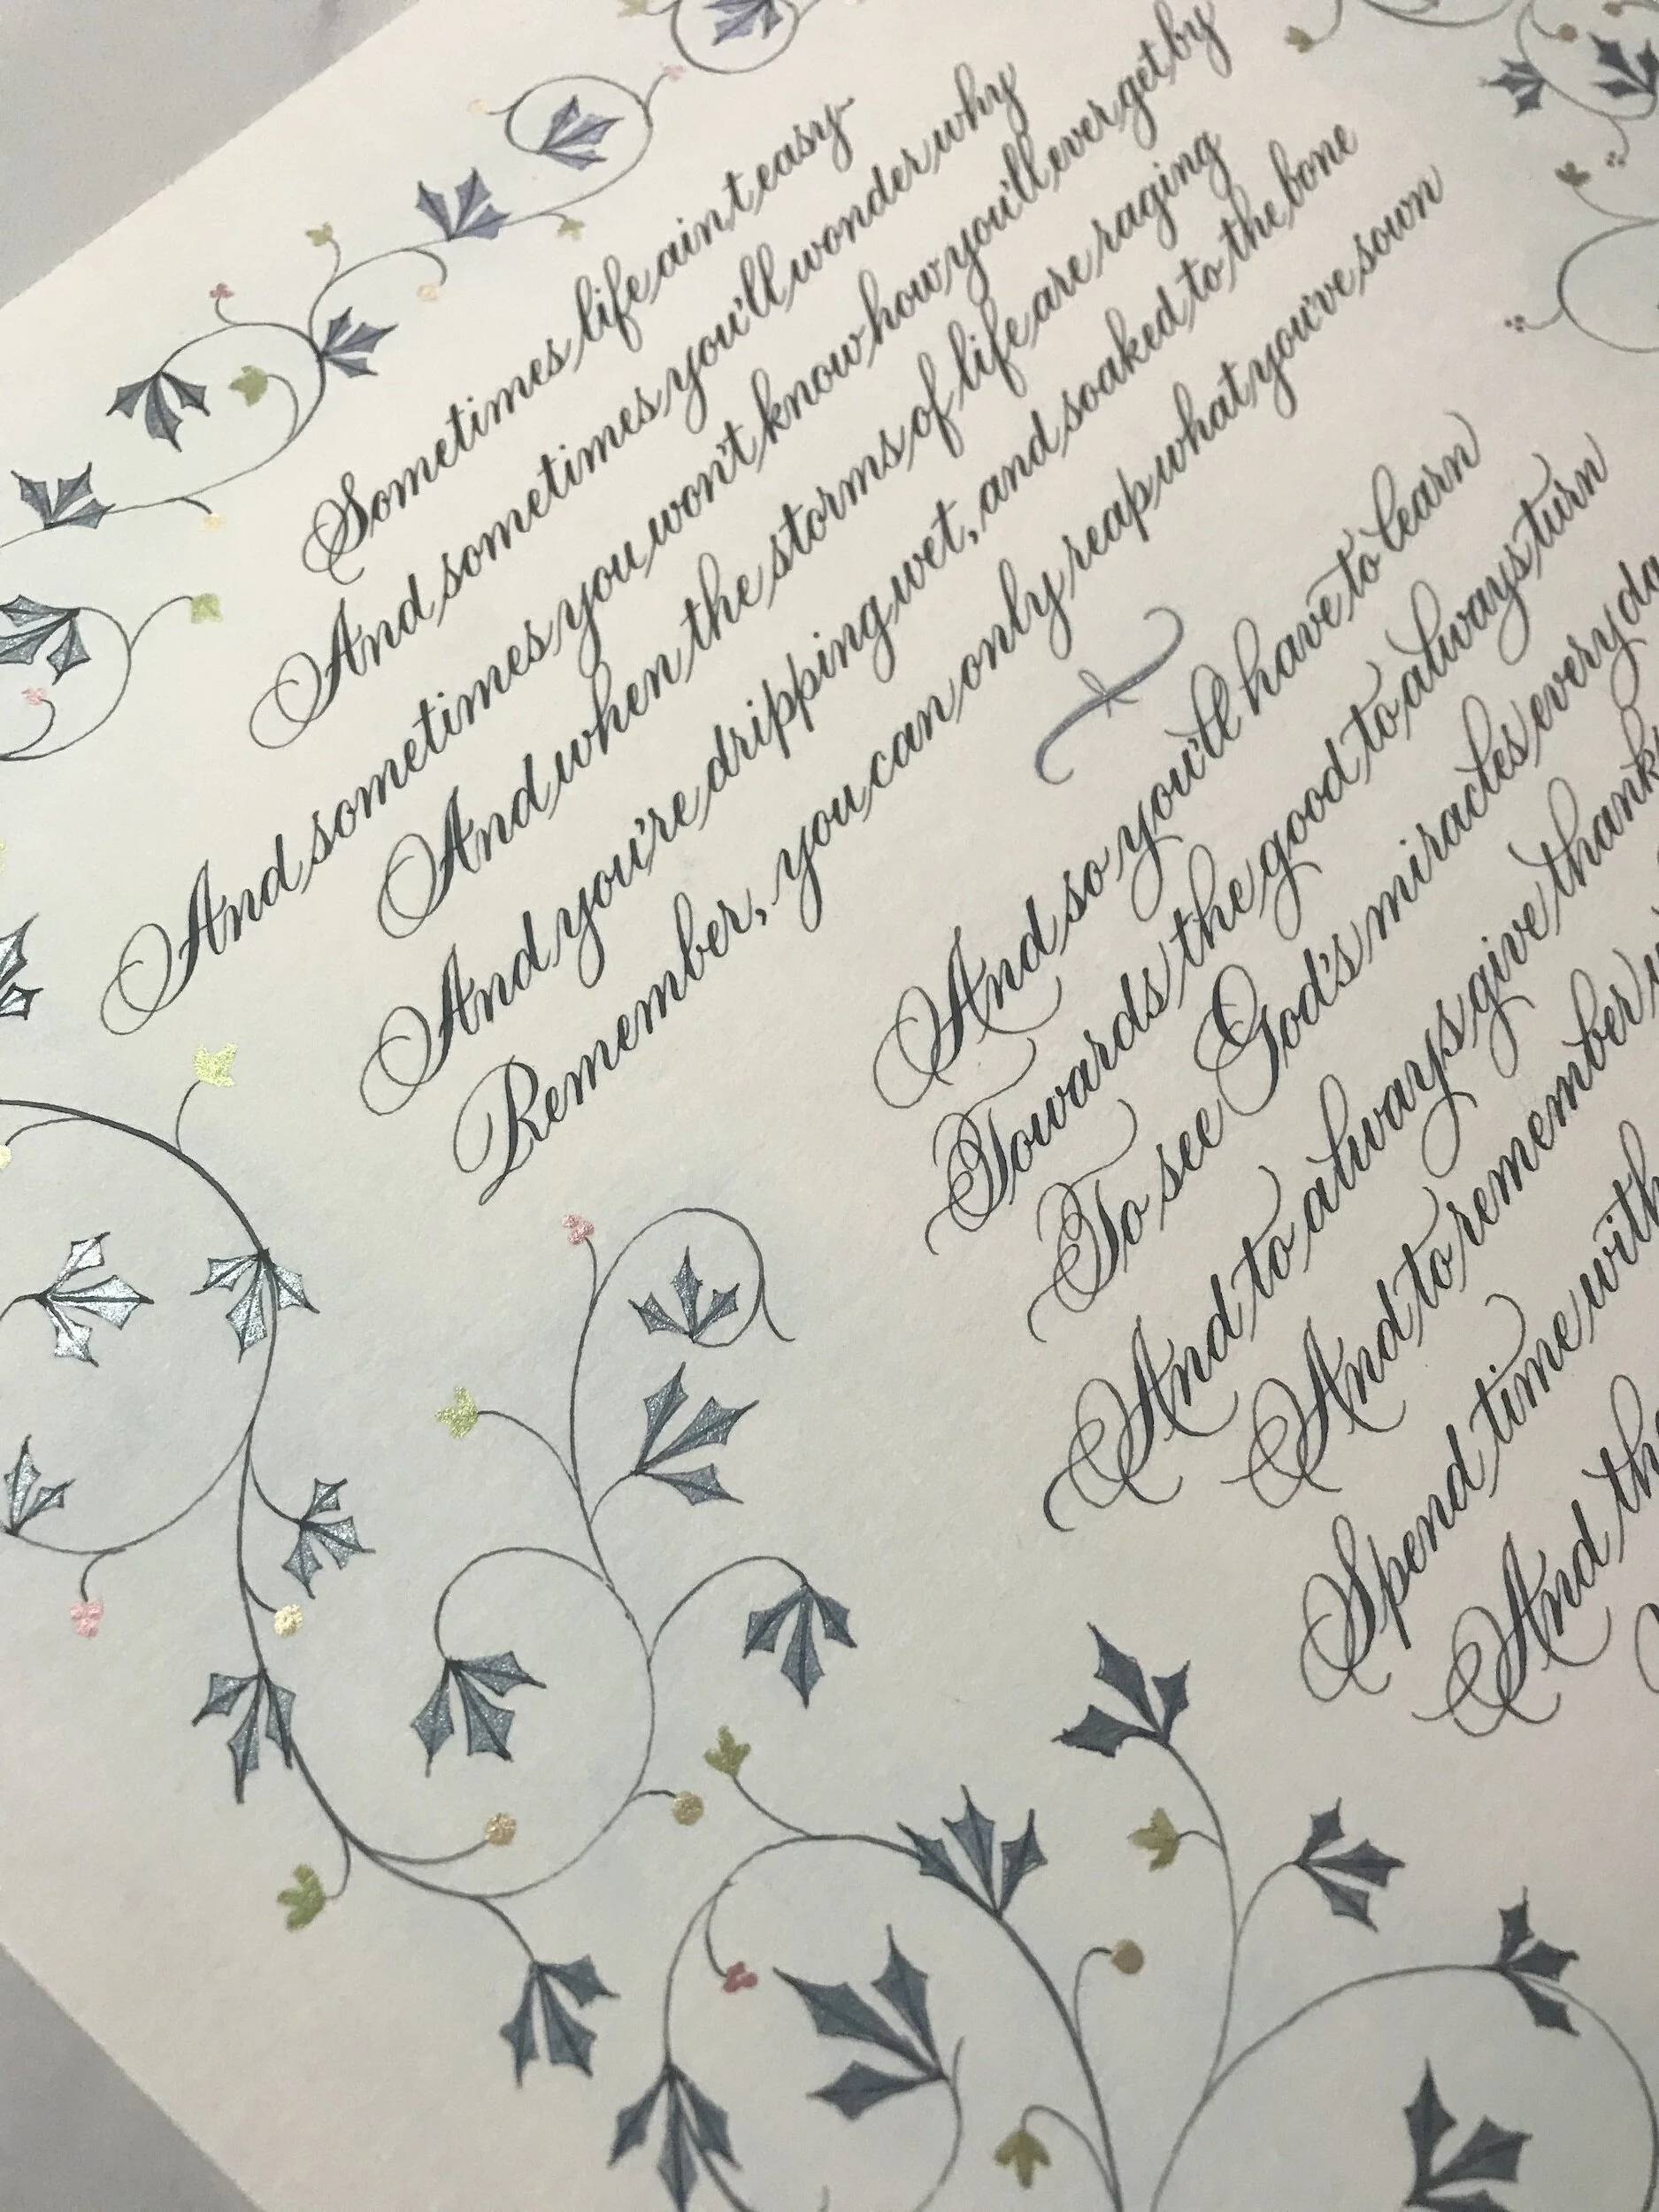 Sometimes life ain't easy
And sometimes you'll wonder why
And sometimes you won't know how you'll ever get by
And when the storms of life are raging
And you're dripping wet, and soaked to the bone
Remember, you can only reap what you've sown
And so you'll have to learn
Towards the good to always turn
To see God's miracles every
And to always give
And to remember
Spend time with
And